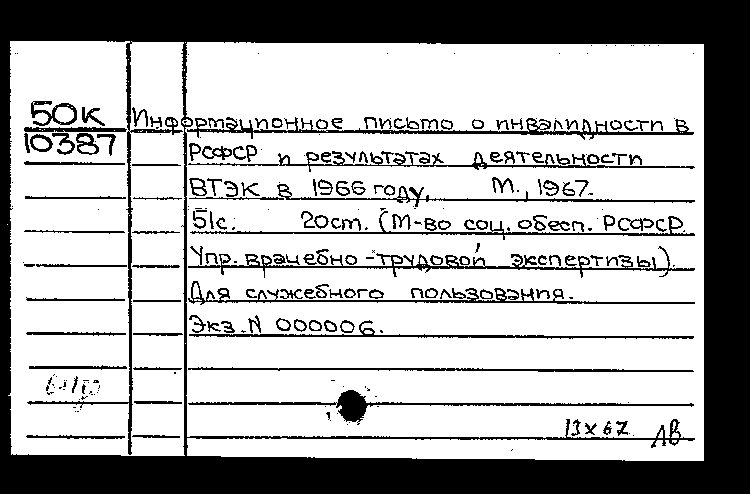 50К
10387
Информационное письмо о инвалидности в
РСФСР и результатах деятельности
ВТЭК в 1966 году, М., 1967.
51с. 20см. (М-во соц. обесп. РСФСР.
Упр. врачебно-трудовой экспертизы).
Для служебного пользования.
Экз. N 000006.
13 X 67 ЛВ